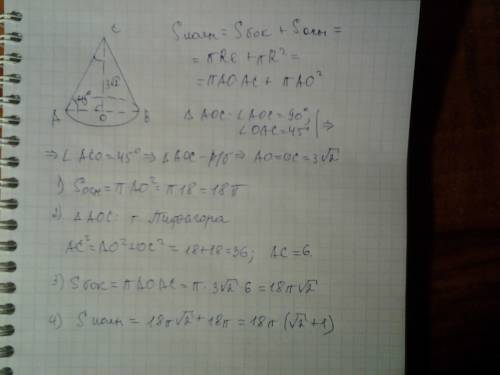 C
3√2
45°
A O B
Sполн = Sбок + Sосн =
= πRl + πR² =
= πAO·AC + πAO²
△ AOC: ∠AOC = 90°,
∠OAC = 45° | ⇒
⇒ ∠ACO = 45° ⇒ △AOC - р/б ⇒ AO = OC = 3√2
1) Sосн = πAO² = π18 = 18π
2) △AOC: т. Пифагора
AC² = AO² + OC² = 18 + 18 = 36; AC = 6.
3) Sбок = πAO·AC = π · 3√2 · 6 = 18π√2
4) Sполн = 18π√2 + 18π = 18π (√2 + 1)